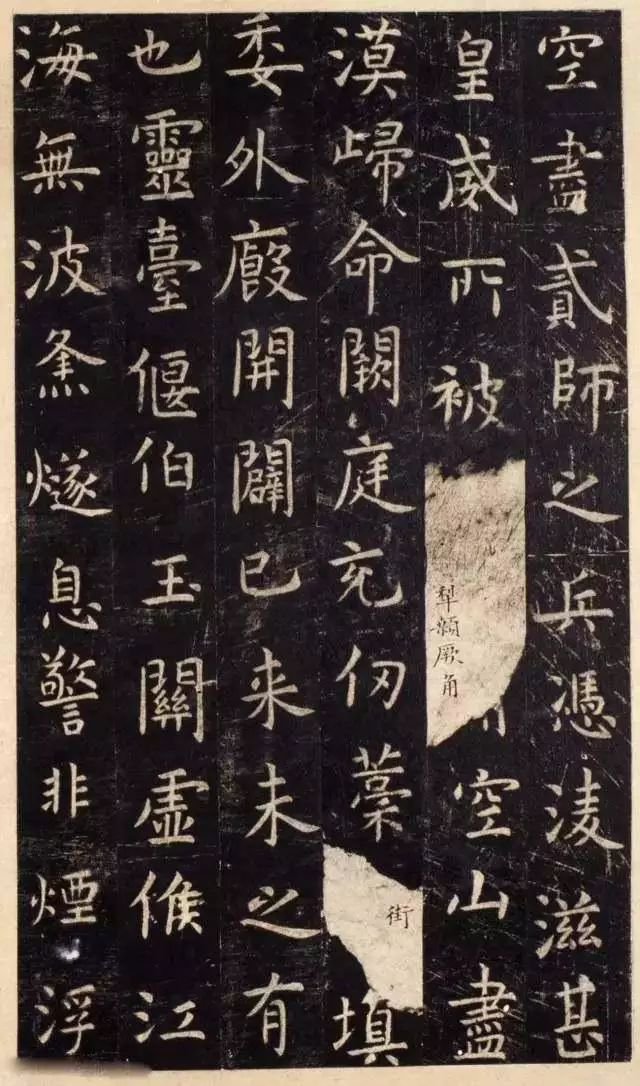 空盡貳師之兵憑淩滋甚
皇威所被犂顙厥角空山盡
漠歸命闕庭充仞藁街填
委外廏開闢已来未之有
也靈臺偃伯玉關虛候江
海無波㷭燧息警非煙浮